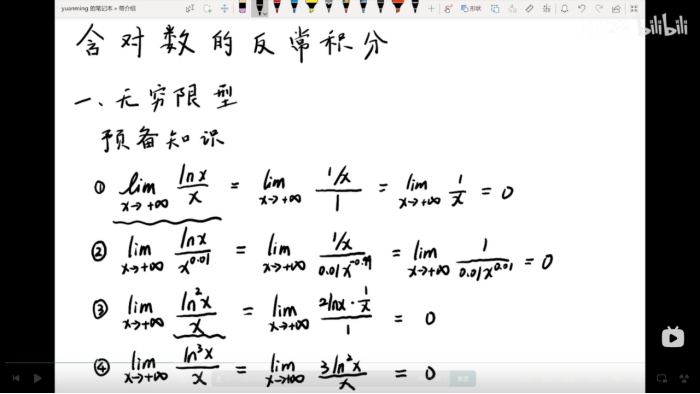 yuanming 的笔记本 • 带介绍
bilibili
含对数的反常积分
一、无穷限型
预备知识
① lim x→+∞ lnx/x = lim x→+∞ (1/x)/1 = lim x→+∞ 1/x = 0
② lim x→+∞ lnx/x^0.01 = lim x→+∞ (1/x)/(0.01x^-0.99) = lim x→+∞ 1/(0.01x^0.01) = 0
③ lim x→+∞ ln²x/x = lim x→+∞ (2lnx · 1/x)/1 = 0
④ lim x→+∞ ln³x/x = lim x→+∞ 3ln²x/x = 0